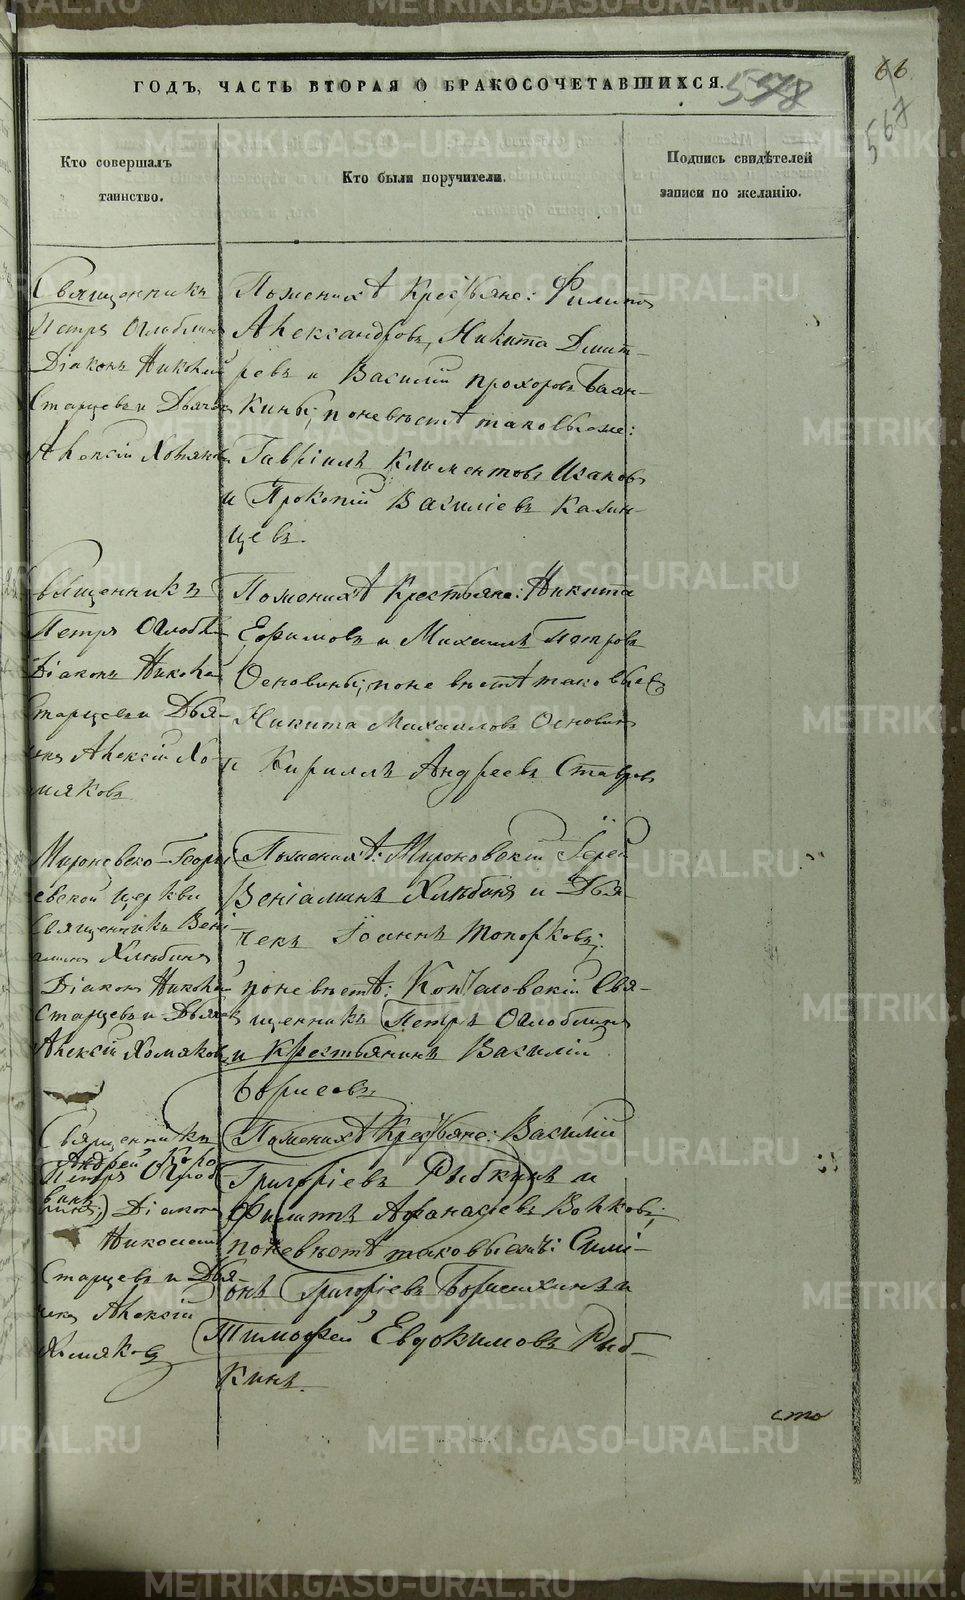 ГОДЪ, ЧАСТЬ ВТОРАЯ О БРАКОСОЧЕТАВШИХСЯ.
578
66
567
Кто совершалъ
таинство.
Кто были поручители.
Подпись свидѣтелей
записи по желанію.
Священникъ
Петръ Оглоблинъ
Діаконъ Николай
Старцевъ и Дьячекъ
Алексій Хомяковъ
По женихѣ Крестьяне: Филиппъ
Александровъ, Никита Дмит-
ревъ и Василій Прохоровъ
кины; по невѣстѣ таковыеже:
Гавріилъ Климентовъ Исаковъ
и Прокопій Василіевъ Казан-
цевъ.
Священникъ
Петръ Оглобли
Діаконъ Никола
Старцевъ и Дья-
чекъ Алексій Хо-
мяковъ
По женихѣ Крестьяне: Никита
Ефимовъ и Михаилъ Петровъ
Основины; по невѣстѣ таковые
Никита Михайловъ Основинъ
и Кириллъ Андреевъ Ставровъ
Мироневско-Георгі
евской церкви
Священникъ Вені
аминъ Хлѣбинъ
Діаконъ Николай
Старцевъ и Дьячекъ
Алексій Хомяковъ
По женихѣ: Мироновскій Іерей
Веніаминъ Хлѣбинъ и Дья
чекъ Іоаннъ Топорковъ;
по невѣстѣ: Копталовскій Свя-
щенникъ Петръ Оглоблинъ
и Крестьянинъ Василій
Борисовъ
Священникъ
Андрей Коро
Петръ Оглоб
винъ
линъ) Діаконъ
Николай
Старцевъ и Дья-
чекъ Алексій
Хомяковъ
По женихѣ Крестьяне: Василій
Григоріевъ Рыбкинъ и
Филиппъ Афанасіевъ Волковъ;
по невѣстѣ таковыежъ: Симі-
онъ Григоріевъ Борисихинъ и
Тимофей Евдокимовъ Рыб-
кинъ.
сто
METRIKI.GASO-URAL.RU